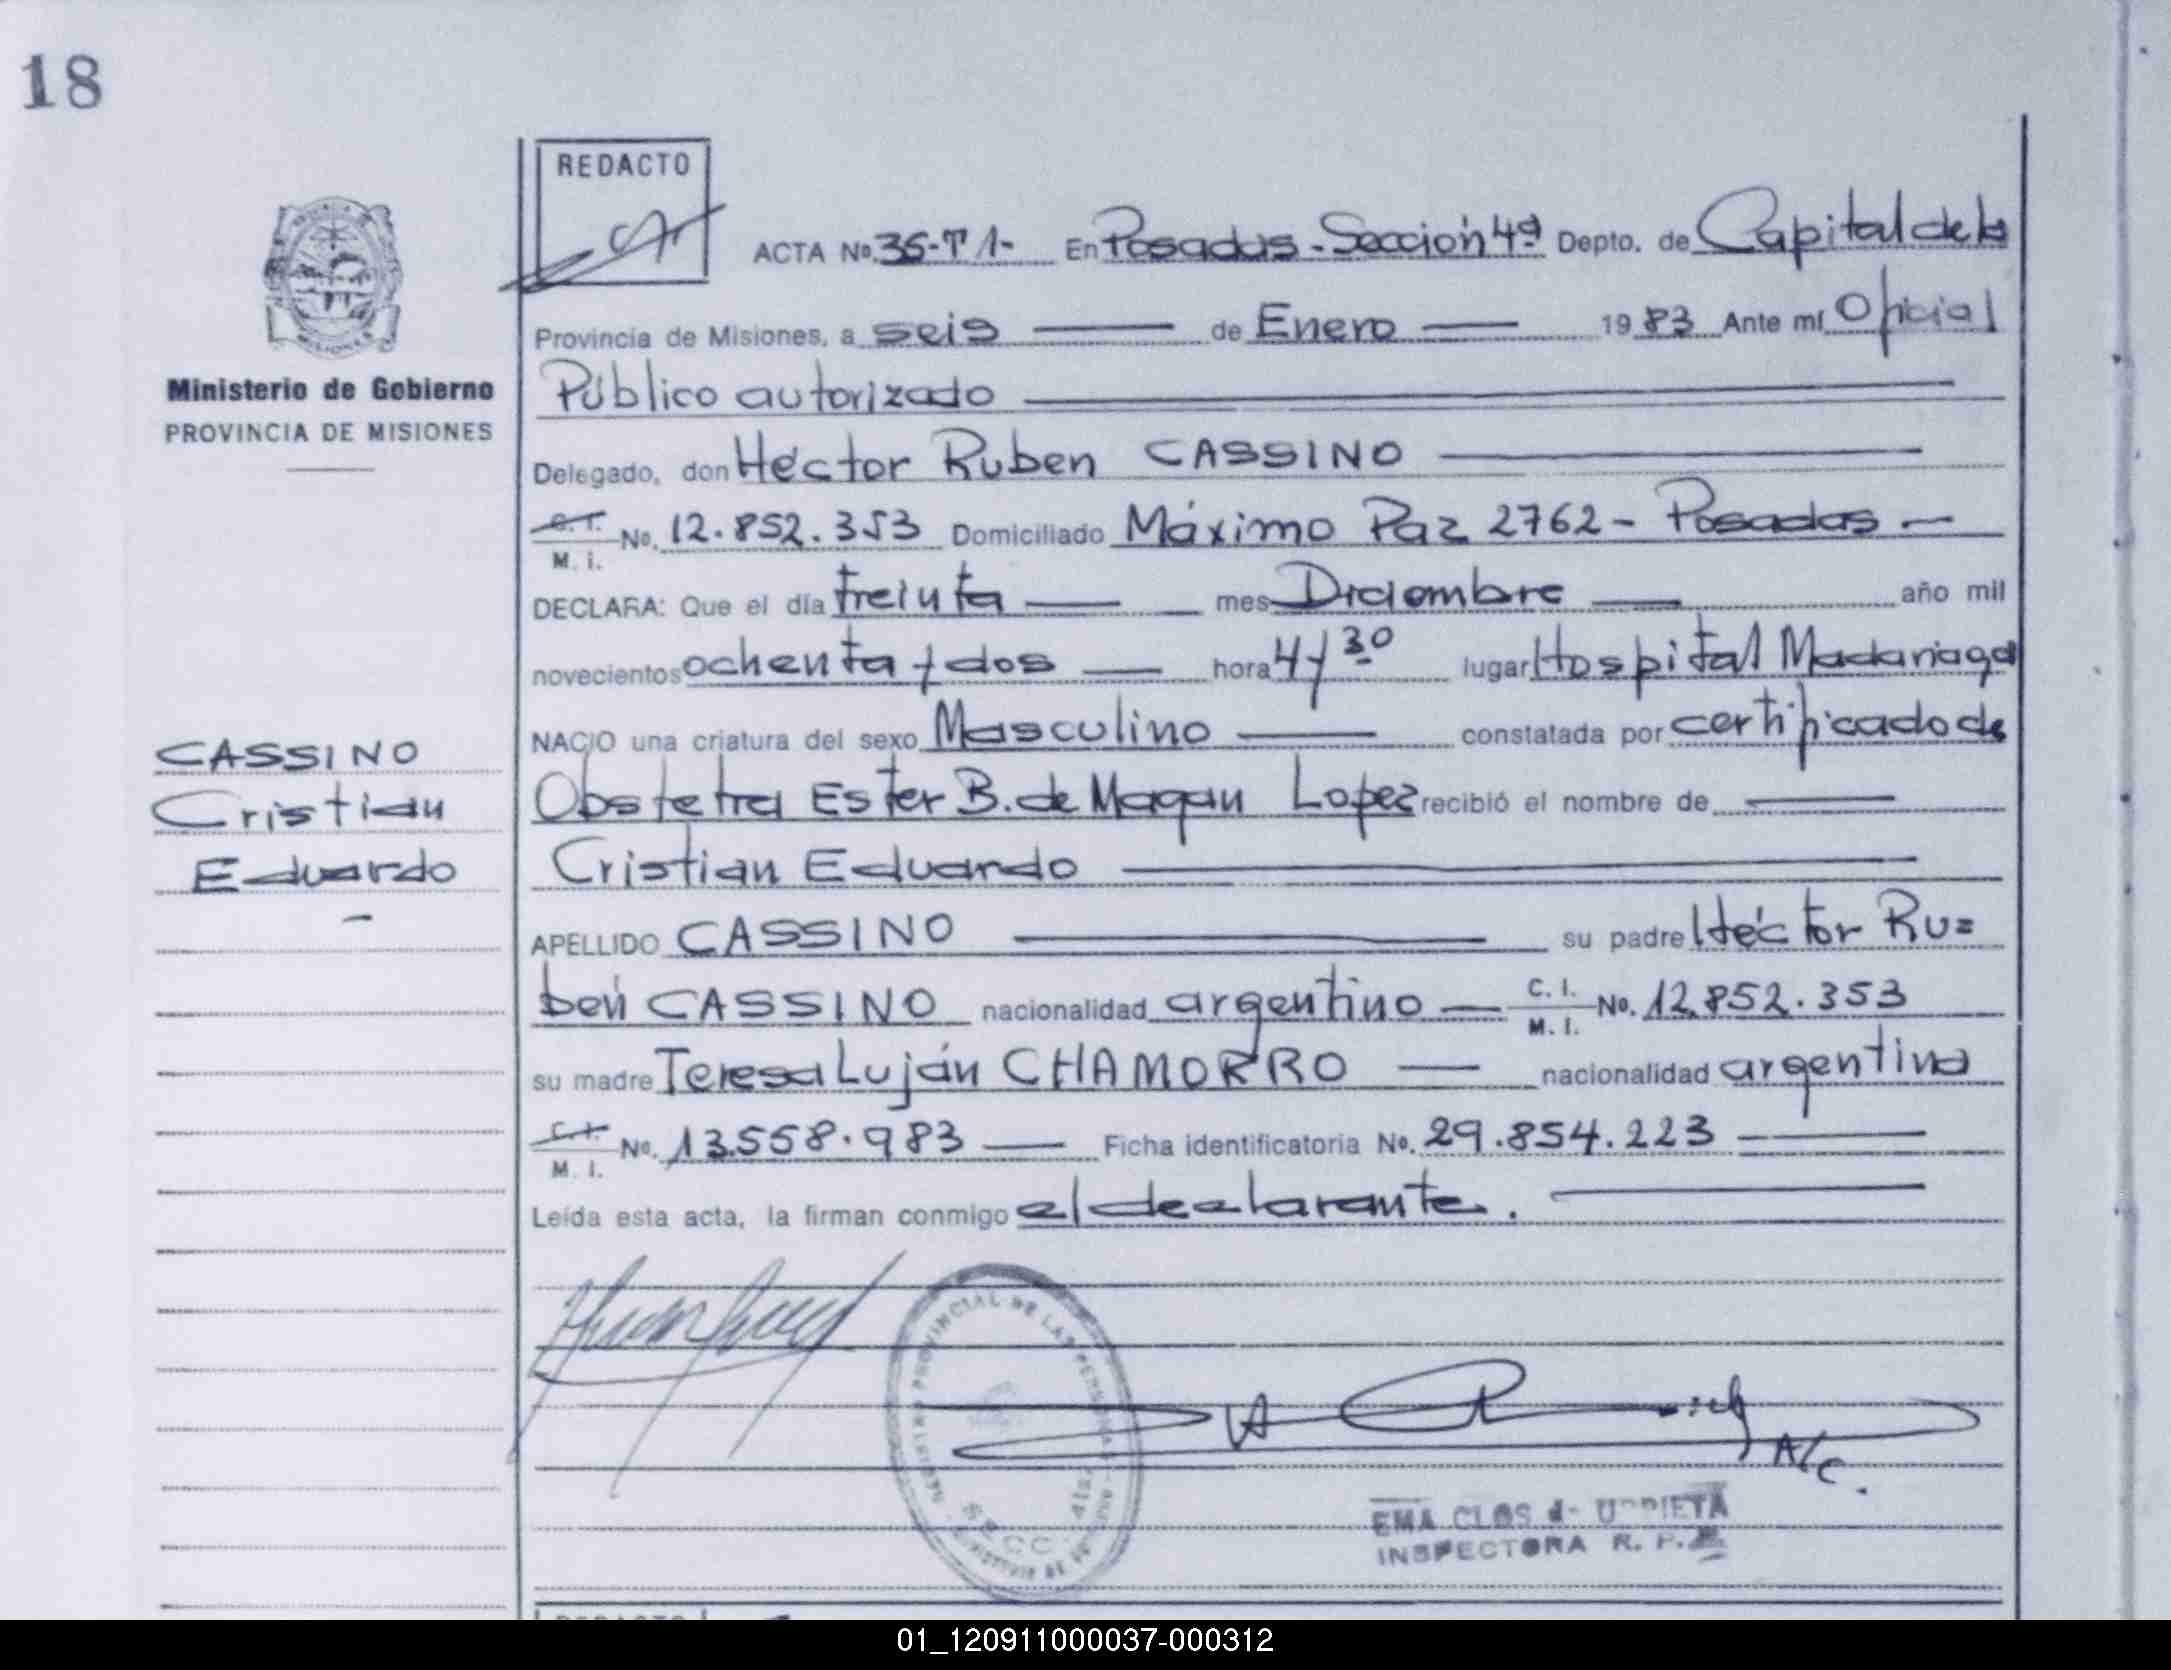 18
REDACTO
ACTA No. 35-T1- En Posadas - Sección 4ª Depto. de Capital de la
Provincia de Misiones, a seis de Enero 1983 Ante mí Oficial
Público autorizado
Ministerio de Gobierno
PROVINCIA DE MISIONES
Delegado, don Héctor Ruben CASSINO
C. I.
M. I. No. 12.852.353 Domiciliado Máximo Paz 2762 - Posadas -
DECLARA: Que el día treinta mes Diciembre año mil
novecientos ochenta y dos hora 4 y 30 lugar Hospital Madariaga
NACIO una criatura del sexo Masculino constatada por certificado de
Obstetra Ester B. de Magan Lopez recibió el nombre de
Cristian Eduardo
CASSINO
Cristian
Eduardo
APELLIDO CASSINO su padre Héctor Ru=
ben CASSINO nacionalidad argentino C. I.
M. I. No. 12.852.353
su madre Teresa Luján CHAMORRO nacionalidad argentina
C. I.
M. I. No. 13.558.983 Ficha identificatoria No. 29.854.223
Leída esta acta, la firman conmigo el declarante.
REGISTRO PROVINCIAL DE LAS PERSONAS
A/C.
EMA CLOS de URRIETA
INSPECTORA R. P.
REDACTO
01_120911000037-000312